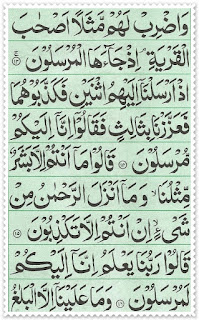 وَاضْرِبْ لَهُمْ مَّثَلًا اَصْحٰبَ
الْقَرْيَةِ ۘ اِذْ جَآءَهَا الْمُرْسَلُوْنَ ۚ﴿۱۳﴾
اِذْ اَرْسَلْنَاۤ اِلَيْهِمُ اثْنَيْنِ فَكَذَّبُوْهُمَا
فَعَزَّزْنَا بِثَالِثٍ فَقَالُوْۤا اِنَّاۤ اِلَيْكُمْ
مُّرْسَلُوْنَ ﴿۱۴﴾ قَالُوْا مَاۤ اَنْتُمْ اِلَّا بَشَرٌ
مِّثْلُنَا ۙ وَمَاۤ اَنْزَلَ الرَّحْمٰنُ مِنْ
شَىْءٍ ۙ اِنْ اَنْتُمْ اِلَّا تَكْذِبُوْنَ ﴿۱۵﴾
قَالُوْا رَبُّنَا يَعْلَمُ اِنَّاۤ اِلَيْكُمْ
لَمُرْسَلُوْنَ ﴿۱۶﴾ وَمَا عَلَيْنَاۤ اِلَّا الْبَلٰغُ